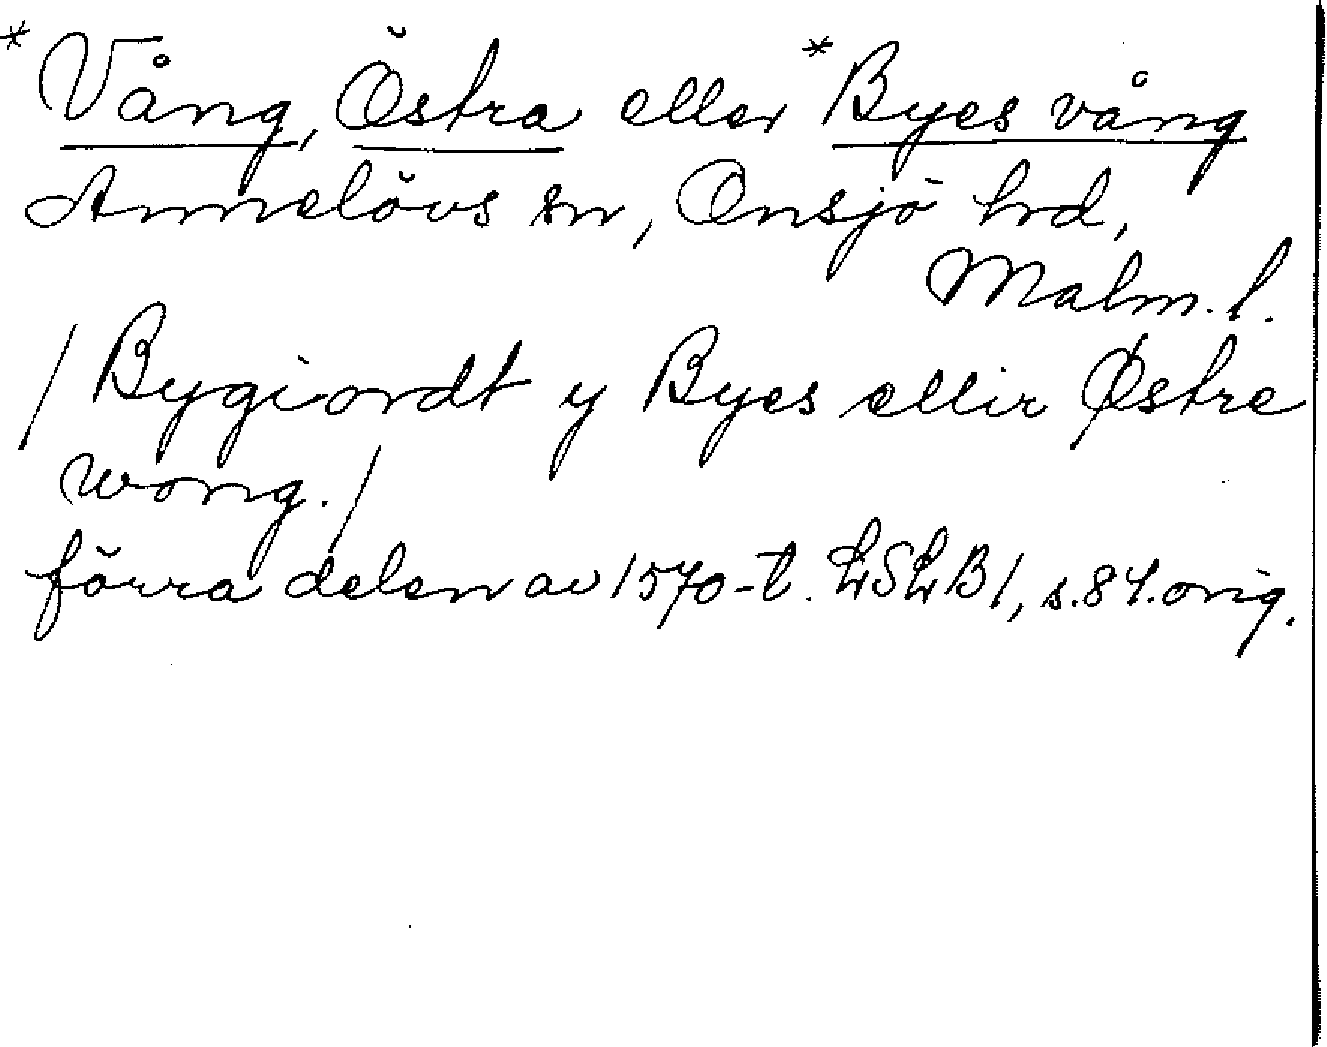 *Vång, Östra eller *Byes vång
Annelövs sn, Onsjö hrd,
Malm. l.
/ Bygiordt y Byes ellir Østre
wong. /
förra delen av 1570-t. LSLB 1, s. 84. orig.